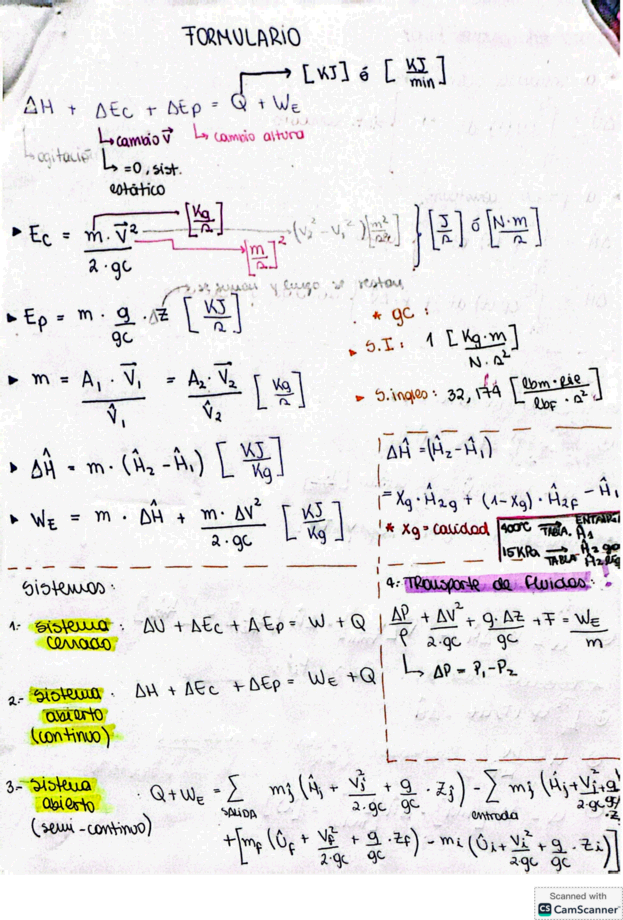 FORMULARIO
→ [KJ] ó [KJ/min]
ΔH + ΔEc + ΔEp = Q + WE
↳ agitación ↳ cambio V⃗ ↳ cambio altura
↳ =0, sist. estático
▸ Ec = m · V⃗² / 2 · gc [Kg/s] [m/s]² (V₂² - V₁²) [m²/s²] } [J/s] ó [N·m/s]
se suman y luego se restan
▸ Ep = m · g/gc · ΔZ [KJ/s]
* gc :
▸ S.I : 1 [Kg·m / N·s²]
▸ m = A₁ · V⃗₁ / V̂₁ = A₂ · V⃗₂ / V̂₂ [Kg/s]
▸ S.ingles : 32,174 [lbm·pie / lbf·s²]
▸ ΔĤ = m · (Ĥ₂ - Ĥ₁) [KJ/Kg]
ΔĤ = (Ĥ₂ - Ĥ₁)
= Xg · Ĥ₂g + (1 - Xg) · Ĥ₂f - Ĥ₁
▸ WE = m · ΔĤ + m · ΔV² / 2 · gc [KJ/Kg]
* Xg = calidad
400°C → TABLA. Ĥ₁
15 KPa → TABLA Ĥ₂
Sistemas :
4.- Transporte de Fluidos :
1.- Sistema Cerrado : ΔU + ΔEc + ΔEp = W + Q
ΔP/ρ + ΔV²/2·gc + g·ΔZ/gc + F = WE/m
↳ ΔP = P₁ - P₂
2.- Sistema abierto (continuo) · ΔH + ΔEc + ΔEp = WE + Q
3.- Sistema abierto (semi-continuo) · Q + WE = Σ SALIDA mj (Ĥj + Vj²/2·gc + g/gc · Zj) - Σ entrada mj (Ĥj + Vj²/2·gc + g/gc · Z
+ [mf (Ûf + Vf²/2·gc + g/gc · Zf) - mi (Ûi + Vi²/2·gc + g/gc · Zi)]
Scanned with
CS CamScanner